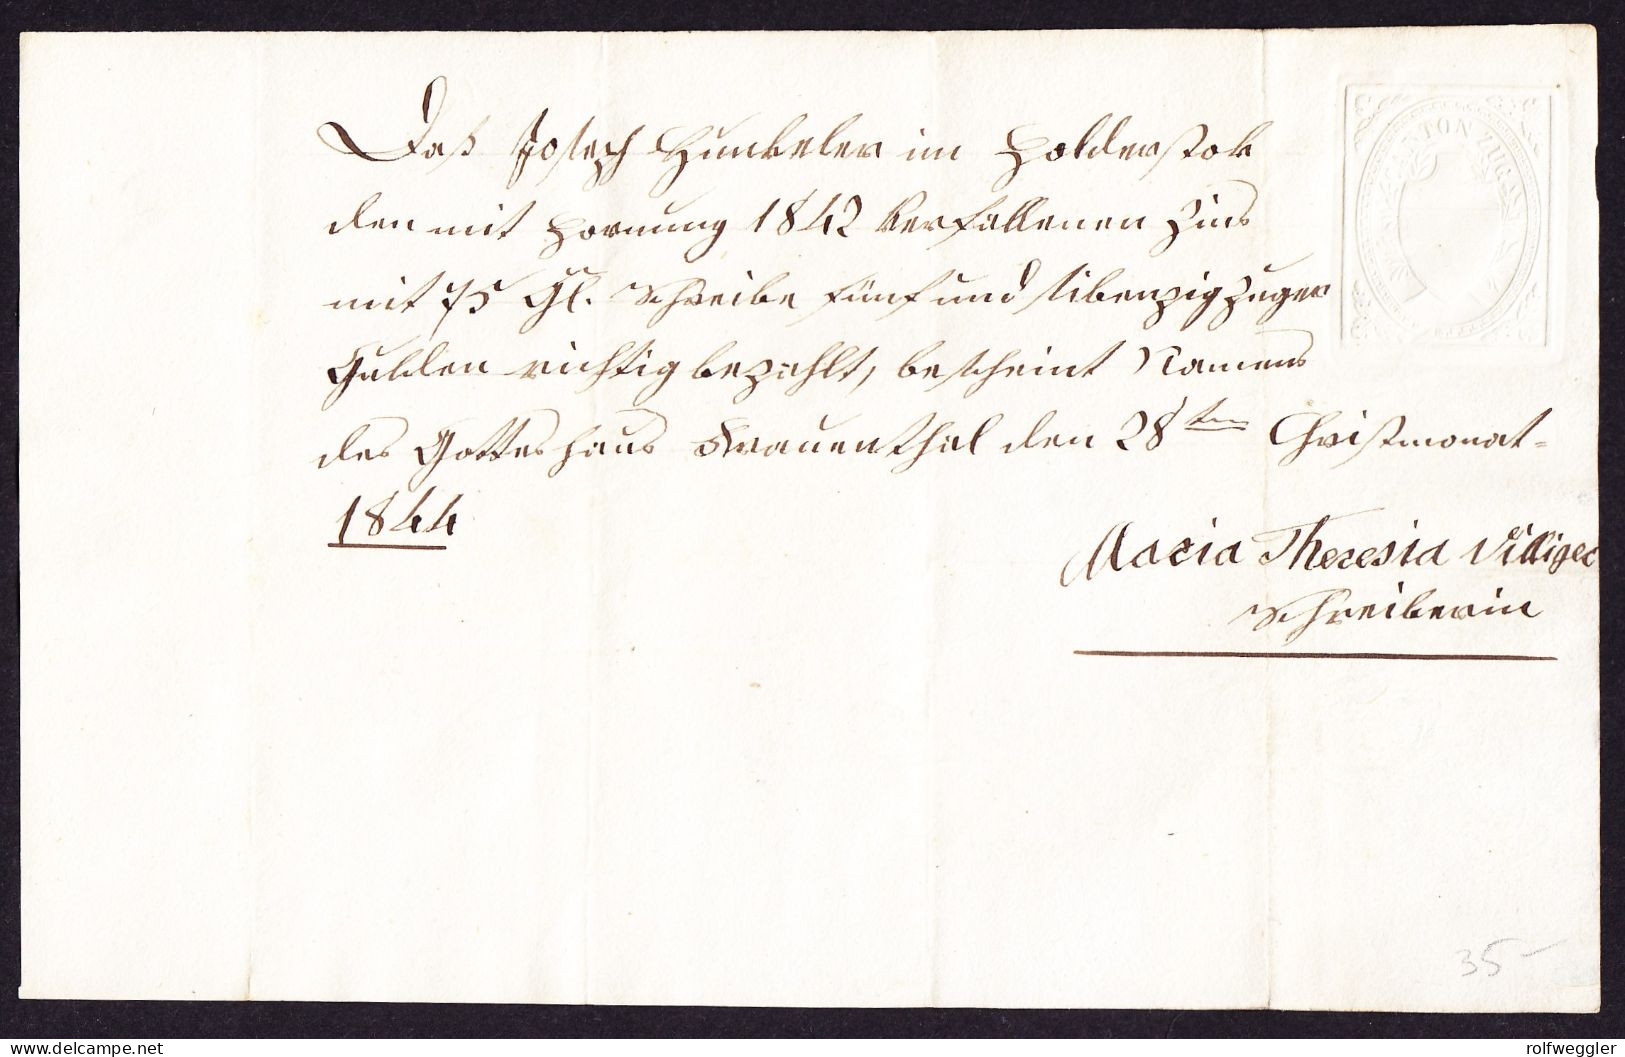 Daß Joseph Hunkeler im Holderstok
den mit Hornung 1842 verfallenen Zins
mit 75 Gl. Schreibe fünf und sibenzig Zuger
Gulden richtig bezahlt, bescheint Namens
des Gotteshaus Frauenthal den 28ten Christmonat-
1844
Maria Theresia Villiger
Schreiberin
KANTON ZUG
35-
delcampe.net
rolfweggler